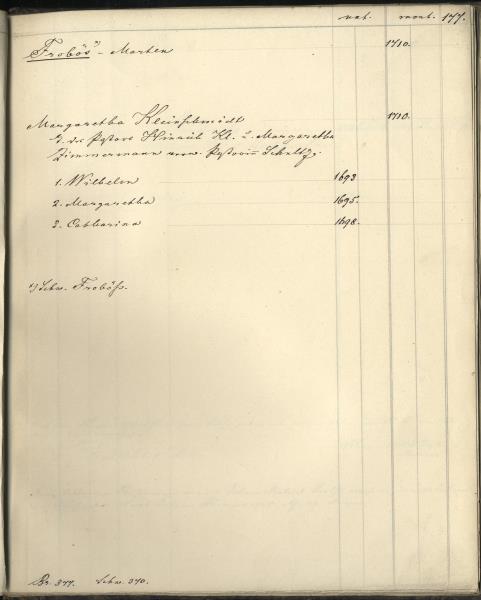 nat. mort. 177.
Frobös *) - Marten 1710.
Margaretha Kleinschmidt 1710.
T. des Pastors Hinrich Kl. u. Margaretha
Zimmermann verw. Pastorin Schultz.
1. Wilhelm 1693
2. Margaretha 1695.
3. Catharina 1698.
*) Schw. Froböss.
Br. 377. Schw. 370.